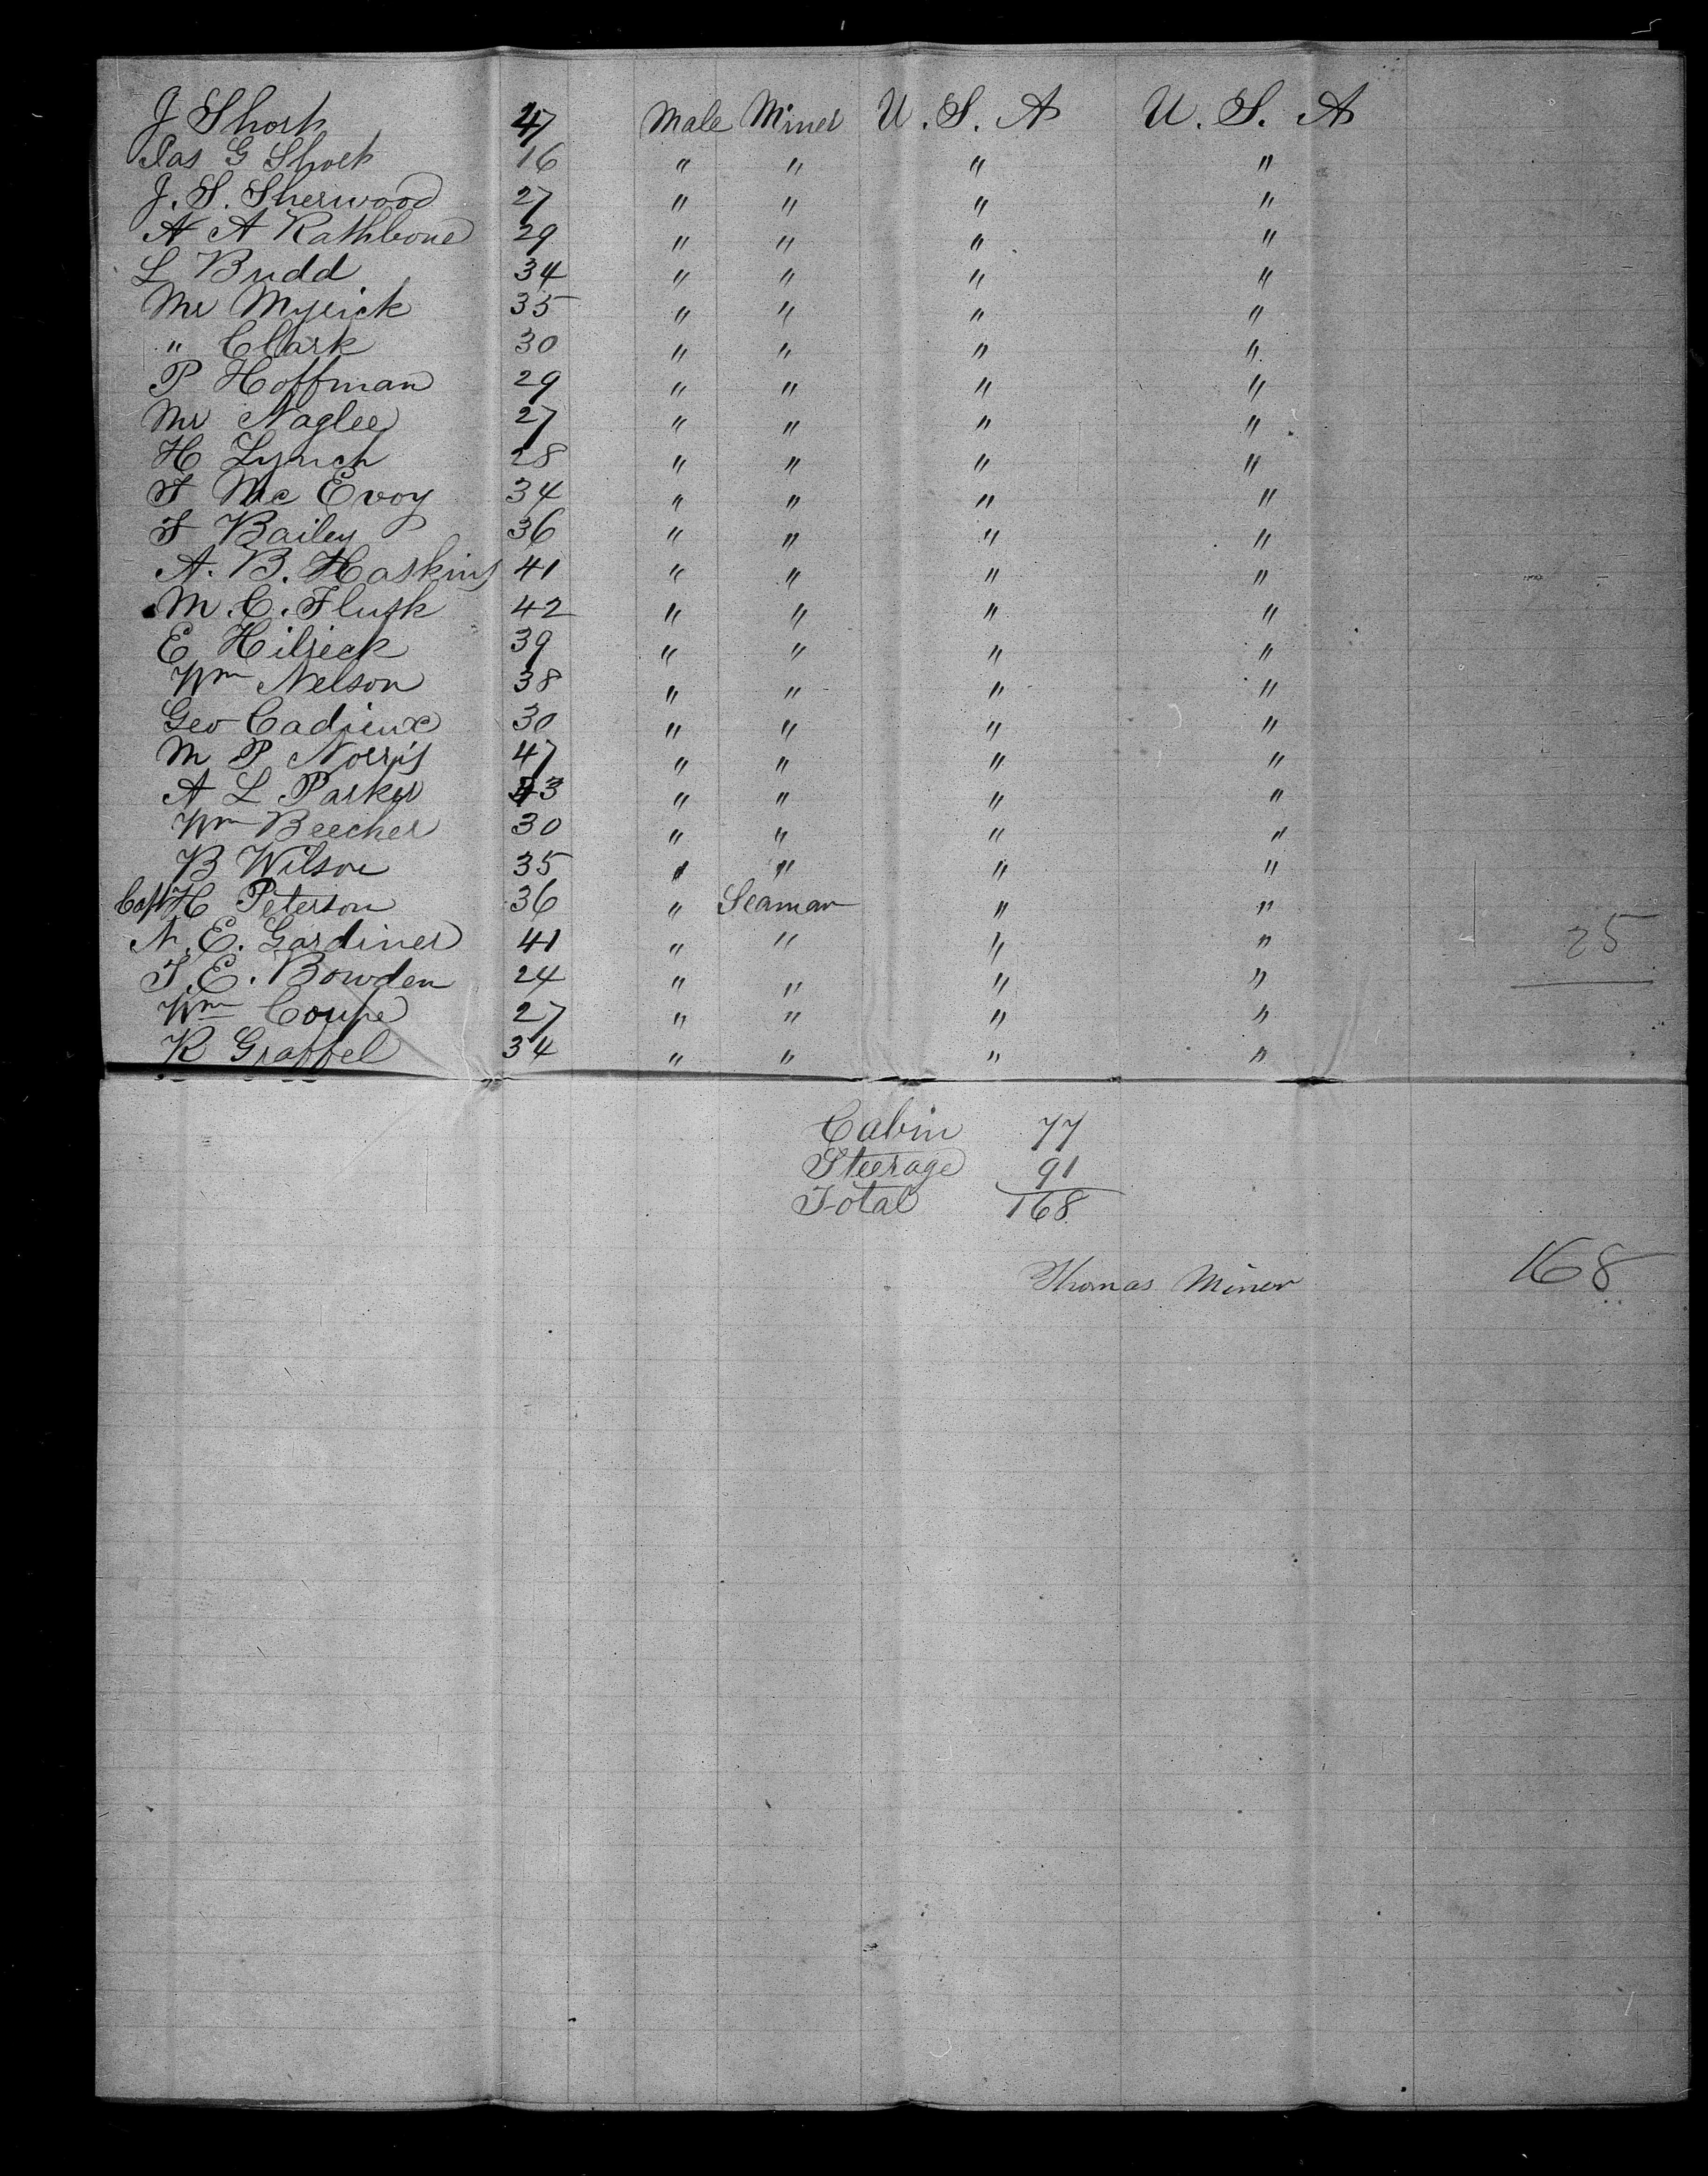 J Short 47 Male Miner U. S. A U. S. A
Jas G Short 16 " " " "
J. S. Sherwood 27 " " " "
A A Rathbone 29 " " " "
L Budd 34 " " " "
Mr Myrick 35 " " " "
" Clark 30 " " " "
P Hoffman 29 " " " "
Mr Naglee 27 " " " "
H Lynch 28 " " " "
F Mc Evoy 34 " " " "
F Bailey 36 " " " "
A. B. Haskins 41 " " " "
M. C. Flusk 42 " " " "
E 39 " " " "
Wm Nelson 38 " " " "
Geo Cadieux 30 " " " "
M P Norris 47 " " " "
A L Parker 43 " " " "
Wm Beecher 30 " " " "
B Wilson 35 " " " "
Capt H Peterson 36 " Seaman " "
N. E. Gardiner 41 " " " " 25
T. E. Bowden 24 " " " "
Wm Coupe 27 " " " "
R Graffel 34 " " " "
Cabin 77
Steerage 91
Total 168
Thomas Miner 168